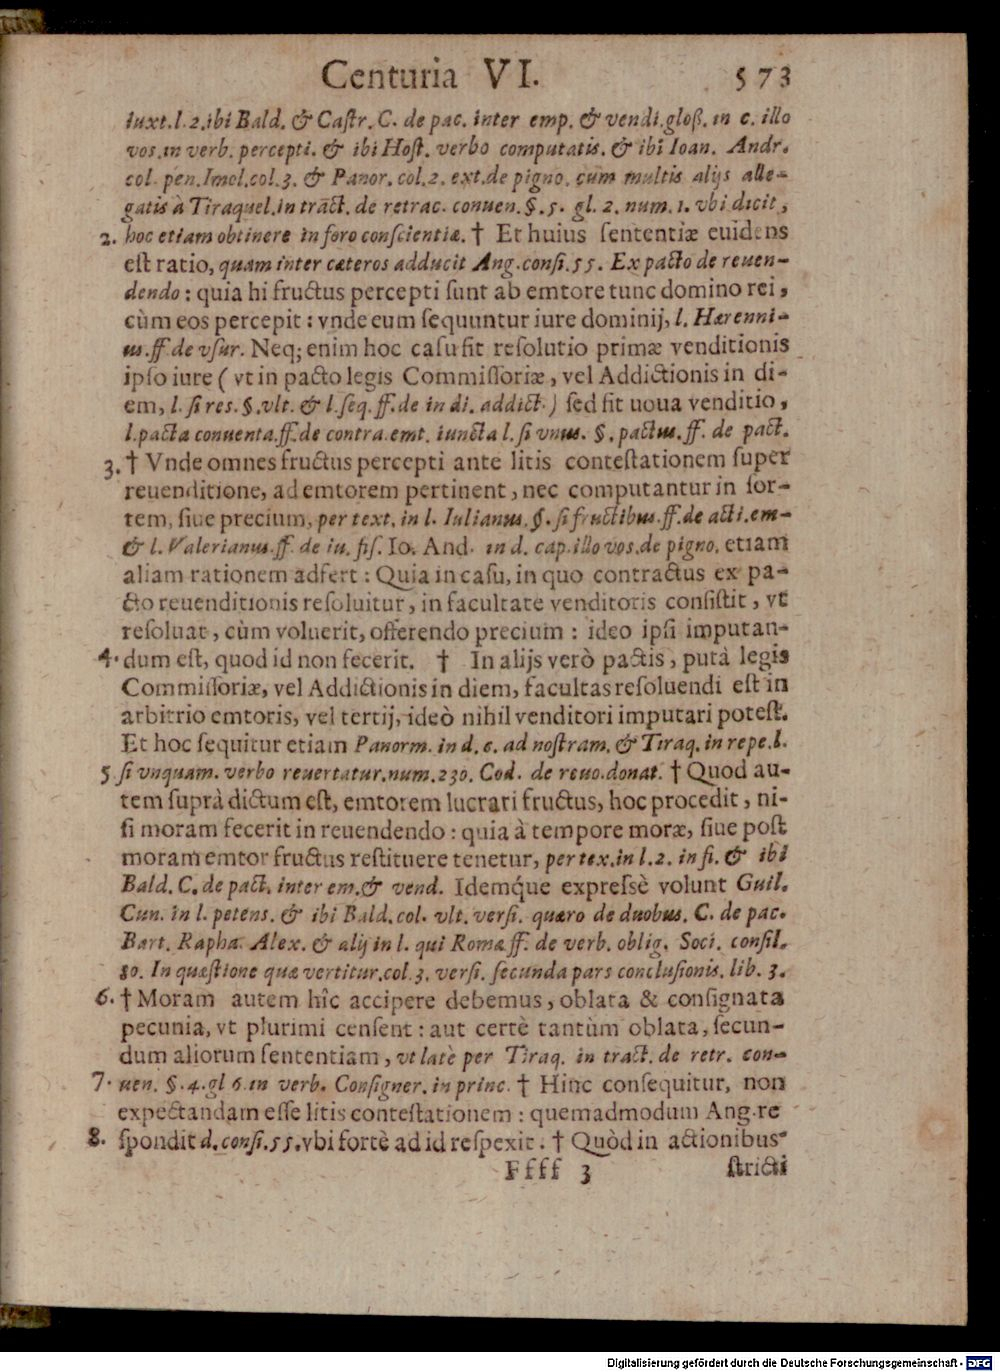 Centuria VI. 573
iuxt.l.2.ibi Bald. & Castr. C. de pac. inter emp. & vendi.gloß. in c. illo
vos.in verb. percepti. & ibi Host. verbo computatis. & ibi Ioan. Andr.
col. pen. Imol.col.3. & Panor. col.2. ext.de pigno. cùm multis alijs alle-
gatis à Tiraquel. in tract. de retrac. conuen. §.5. gl. 2. num. 1. vbi dicit,
2. hoc etiam obtinere in foro conscientiæ. † Et huius sententiæ euidens
est ratio, quam inter cæteros adducit Ang.consi.55. Ex pacto de reuen-
dendo: quia hi fructus percepti sunt ab emtore tunc domino rei,
cùm eos percepit: vnde eum sequuntur iure dominij, l. Hærenni-
us.ff.de vsur. Neq; enim hoc casu fit resolutio primæ venditionis
ipso iure (vt in pacto legis Commissoriæ, vel Addictionis in di-
em, l. si res. §.vlt. & l.seq. ff. de in di. addict.) sed fit uoua venditio,
l.pacta conuenta.ff.de contra.emt. iuncta l. si vnus. §. pactus.ff. de pact.
3. † Vnde omnes fructus percepti ante litis contestationem super
reuenditione, ad emtorem pertinent, nec computantur in sor-
tem, siue precium, per text. in l. Iulianus. §. si fructibus.ff.de acti.em-
& l. Valerianus.ff. de iu. fis. Io. And. in d. cap.illo vos.de pigno. etiam
aliam rationem adfert: Quia in casu, in quo contractus ex pa-
cto reuenditionis resoluitur, in facultate venditoris consistit, vt
resoluat, cùm voluerit, offerendo precium: ideo ipsi imputan-
4. dum est, quod id non fecerit. † In alijs verò pactis, putà legis
Commissoriæ, vel Addictionis in diem, facultas resoluendi est in
arbitrio emtoris, vel tertij, ideò nihil venditori imputari potest.
Et hoc sequitur etiam Panorm. in d. c. ad nostram. & Tiraq. in repe.l.
5 si vnquam. verbo reuertatur.num.230. Cod. de reuo.donat. † Quod au-
tem suprà dictum est, emtorem lucrari fructus, hoc procedit, ni-
si moram fecerit in reuendendo: quia à tempore moræ, siue post
moram emtor fructus restituere tenetur, per tex.in l.2. in fi. & ibi
Bald. C. de pact. inter em.& vend. Idemq́ue expressè volunt Guil.
Cun. in l. petens. & ibi Bald.col. vlt. versi. quæro de duobus. C. de pac.
Bart. Rapha. Alex. & alij in l. qui Romæ ff. de verb. oblig. Soci. consil.
80. In quæstione quæ vertitur.col.3. versi. secunda pars conclusionis. lib. 3.
6. † Moram autem hîc accipere debemus, oblata & consignata
pecunia, vt plurimi censent: aut certè tantùm oblata, secun-
dum aliorum sententiam, vt latè per Tiraq. in tract. de retr. con-
7. uen. §.4.gl 6.in verb. Consigner.in princ. † Hinc consequitur, non
expectandam esse litis contestationem: quemadmodum Ang.re
8. spondit d. consi.55.vbi fortè ad id respexit. † Quòd in actionibus
Ffff 3 stricti
Digitalisierung gefördert durch die Deutsche Forschungsgemeinschaft - DFG